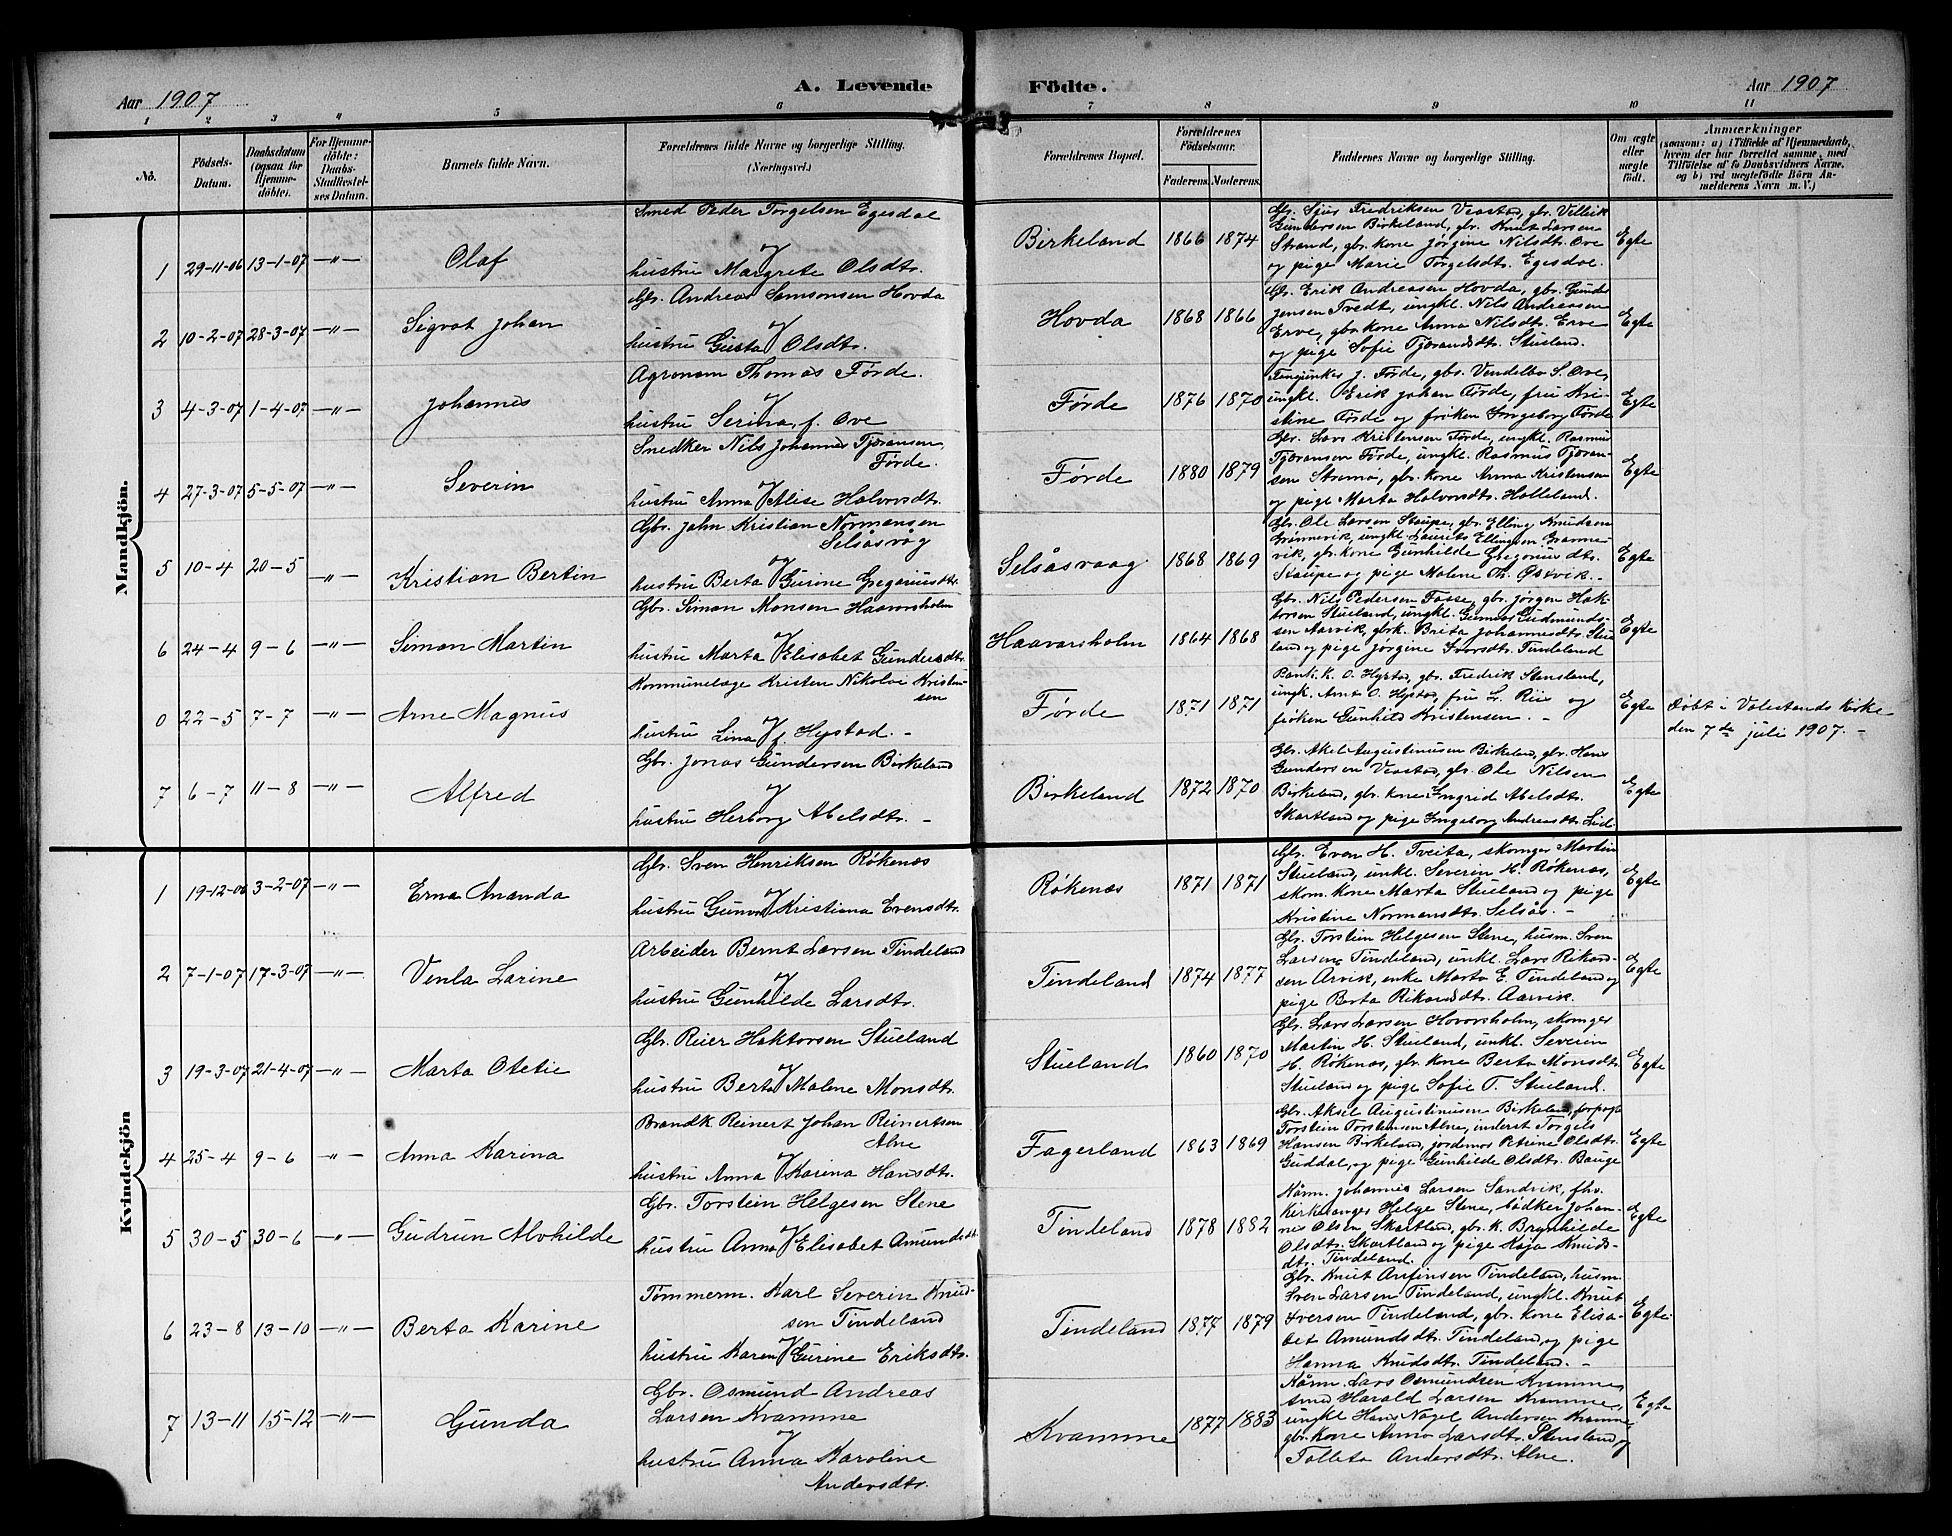 Aar 1907
A. Levende Födte.
Aar 1907
1 2 3 4 5 6 7 8 9 10 11
No.
Födsels-Datum.
Daabsdatum (ogsaa for Hjemme-döbte).
For Hjemme-döbte: Daabs-Stadfæstelses Datum.
Barnets fulde Navn.
Forældrenes fulde Navne og borgerlige Stilling. (Næringsvei.)
Forældrenes Bopæl.
Forældrenes Födselsaar.
Faderens. Moderens.
Faddernes Navne og borgerlige Stilling.
Om ægte eller uægte födt.
Anmærkninger
(saasom: a) i Tilfælde af Hjemmedaab, hvem der har forrettet samme, med Tilföielse af to Daabsvidners Navne, og b) ved uægtefödte Börn Anmelderens Navn m. V.)
Mandkjön.
1 29-11-06 13-1-07 —„— Olaf
Smed Peder Torgelsen Egesdal
hustru Margrete Olsdtr.
Birkeland 1866 1874
Gbr. Sjur Fredriksen Veastad, gbr. Vellik
Gundersen Birkeland, gbr. Knut Larsen
Strand, gbr. kone Jørgine Nilsdtr. Ove
og pige Marie Torgelsdtr. Egesdal.
Egte
2 10-2-07 28-3-07 —„— Sigvat Johan
Gbr. Andreas Samsonsen Hovda
hustru Gusta Olsdtr.
Hovda 1868 1866
Gbr. Erik Andreasen Hovda, gbr. Gunder
Jensen Tvedt, ungkl. Nils Andreasen
Erve, gbr. kone Anna Nilsdtr. Erve
og pige Sofie Tjerandsdtr. Stusland.
Egte
3 4-3-07 1-4-07 —„— Johannes
Agronom Thomas Førde.
hustru Serina, f. Ove
Førde 1876 1870
J. Førde, gbr. Vendelbo S. Ove,
ungkl. Erik Johan Førde, fru Kri-
stine Førde og frøken Ingeborg Førde
Egte
4 27-3-07 5-5-07 —„— Severin
Snedker Nils Johannes Tjøransen
Førde.
hustru Anna Alise Halvorsdtr.
Førde 1880 1879
Gbr. Lars Kristensen Førde, ungkl. Rasmus
Tjøransen Førde, ungkl. Rasmus Tjøran-
sen Strømø, gbr. kone Anna Kristensen
og pige Marta Halvorsdtr. Halleland.
Egte
5 10-4 20-5 —„— Kristian Bertin
Gbr. John Kristian Normansen
Selsåsvåg
hustru Berta Gurine Gregariusdtr.
Selsåsvaag 1868 1869
Gbr. Ole Larsen Staupe, gbr. Elling Knudsen
Grønnevik, ungkl. Laurits Ellingsen Grønne-
vik, gbr. kone Gunhilde Gregoriusdtr.
Staupe og pige Malene Th. Østvik. -
Egte
6 24-4 9-6 —„— Simon Martin
Gbr. Simon Monsen Haavarsholm
hustru Marta Elisabet Gundersdtr.
Haavarsholm 1864 1868
Gbr. Nils Pedersen Fosse, gbr. Jørgen Hak-
torsen Stueland, ungkl. Gunnar Gudmunds-
sen Aarvik, gbrk. Brita Johannesdtr. Stue
land og pige Jørgine Iversdtr. Tindeland
Egte
0 22-5 7-7 —„— Arne Magnus
Kommunelæge Kristen Nikolai Kristen-
sen
hustru Lina f. Hystad. -
Førde 1871 1871
Bank. K. O. Hystad, gbr. Fredrik Stensland,
ungk. Arnt O. Hystad, fru L. Riis og
frøken Gunhild Kristensen. -
Egte
Døbt i Valestrands kirke
den 7de juli 1907. -
7 6-7 11-8 —„— Alfred
Gbr. Jonas Gundersen Birkeland
hustru Herborg Abelsdtr. -
Birkeland 1872 1870
Gbr. Aksel Augustinusen Birkeland, gbr. Hans
Gundersen Veastad, gbr. Ole Nilsen
Birkeland, gbr. kone Ingrid Abelsdtr.
Skartland og pige Ingeborg Andreasdtr. Lid.
Egte
Kvindekjön
1 19-12-06 3-2-07 —„— Erna Amanda
Gbr. Sven Henriksen Røkenæs
hustru Gunvor Kristiana Evensdtr.
Røkenæs 1871 1871
Gbr. Even H. Tveita, skomger Martin
Stueland, unkl. Severin H. Røkenæs,
skom. kone Marta Stueland og pige
Kristine Normansdtr. Selsås. -
Egte
2 7-1-07 17-3-07 —„— Venla Larine
Arbeider Bernt Larsen Tindeland
hustru Gunhilde Larsdtr.
Tindeland 1874 1877
Gbr. Torstein Helgesen Stene, husm. Sven
Larsen Tindeland, unkl. Lars Rikard-
sen Arvik, enke Marta E. Tindeland og
pige Berta Rikardsdtr. Aarvik.
Egte
3 19-3-07 21-4-07 —„— Marta Otetie
Gbr. Reier Haktorsen Stueland
hustru Berta Malene Monsdtr.
Stueland 1860 1870
Gbr. Lars Larsen Hovorsholm, skomger
Martin H. Stueland, unkl. Severin
H. Røkenæs, gbr. kone Berta Monsdtr.
Stueland og pige Sofie T. Stueland.
Egte
4 25-4 9-6 —„— Anna Karina
Brandk Reinert Johan Reinertsen
Alne
hustru Anna Karina Hansdtr.
Fagerland 1863 1869
Gbr. Aksel Augustinusen Birkeland, forpagt
Torstein Torstensen Alne, inderst Torgels
Hansen Birkeland, jordemor Petrine Olsdtr.
Guddal, og pige Gunhilde Olsdtr. Bauge
Egte
5 30-5 30-6 —„— Gudrun Alvhilde
Gbr. Torstein Helgesen Stene
hustru Anna Elisabet Amundsdtr
Tindeland 1878 1882
Kårm. Johannes Larsen Sandvik, fhv.
kirkesanger Helge Stene, bødker Johan-
nes Olsen Skartland, gbr. k. Brynhilde
Olsdtr. Skartland og pige Kaja Knuds-
dtr. Tindeland.
Egte
6 23-8 13-10 —„— Berta Karine
Tømmerm. Karl Severin Knud-
sen Tindeland
hustru Karen Gurine Eriksdtr.
Tindeland 1877 1879
Gbr. Knut Anfinsen Tindeland, husm.
Sven Larsen Tindeland, ungkl. Knut
Iversen Tindeland, gbr. kone Elisa-
bet Amundsdtr. Tindeland, og pige
Hanna Knudsdtr. Tindeland. -
Egte
7 13-11 15-12 —„— Gunda
Gbr. Osmund Andreas
Larsen Kvamme
hustru Anna Karoline
Andersdtr.
Kvamme 1877 1883
Kårm. Lars Osmundsen Kvamme,
smed Harald Larsen Kvamme,
ungkl Hans Nagel Andersen Kvamme
gbr. kone Anna Larsdtr. Stensland og
Tolleta Andersdtr. Alne.
Egte